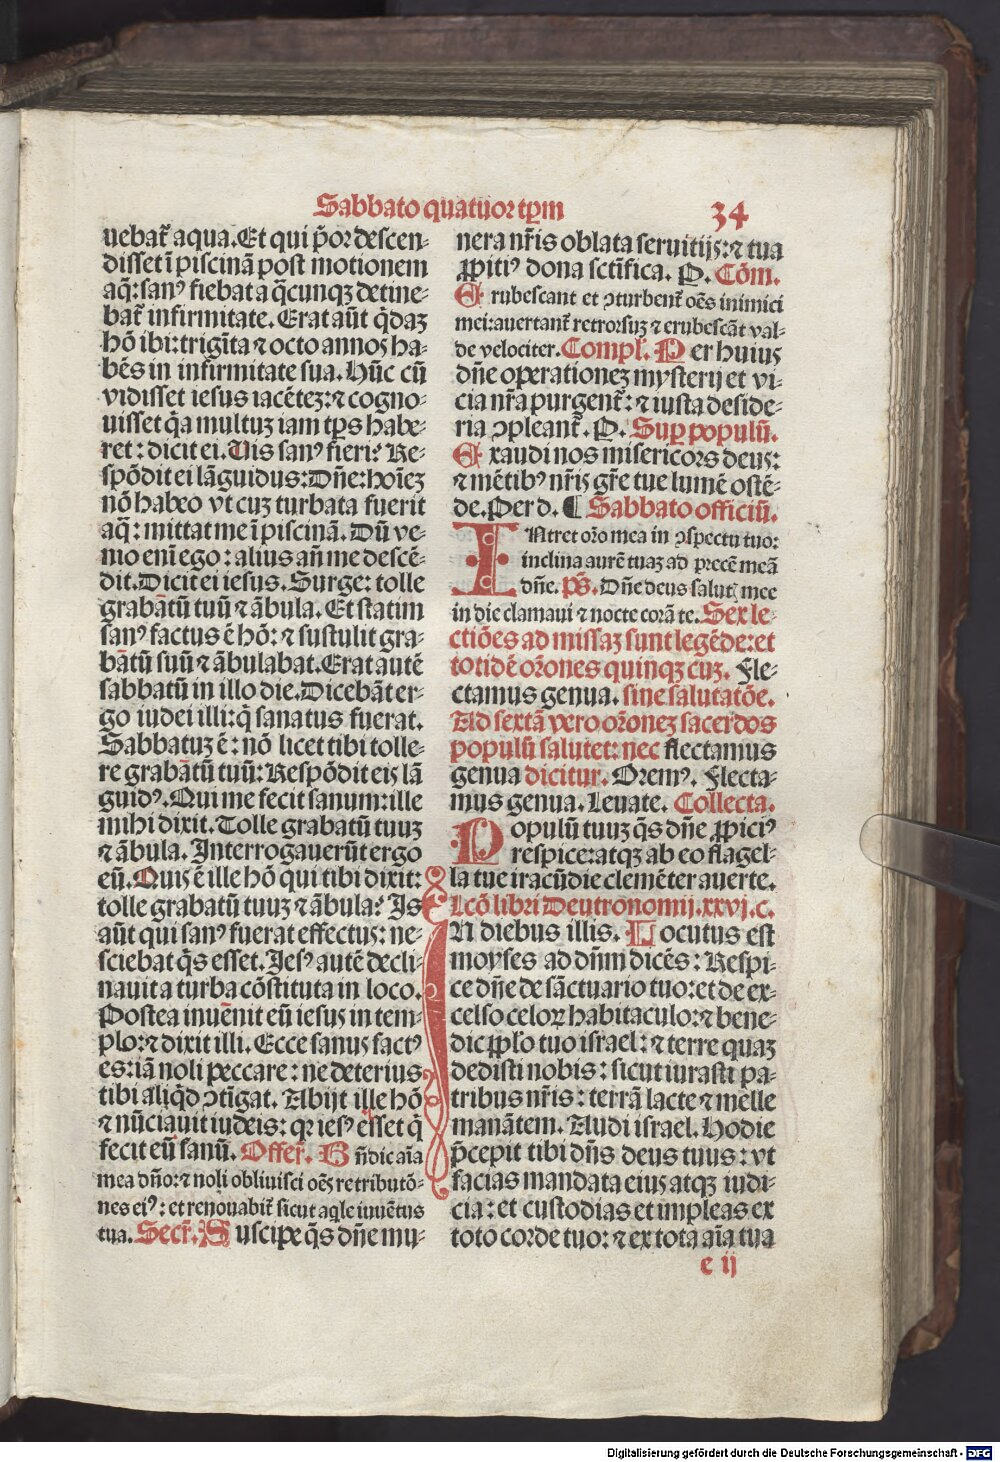 Sabbato quatuor tꝑm 34
uebat᷑ aqua. Et qui p̄or descen-
disset ī piscinā post motionem
aq̄: sanꝰ fiebat a q̄cunqꝫ detine-
bat᷑ infirmitate. Erat aūt q̄daꝫ
hō ibi: trigīta ⁊ octo annos ha-
bēs in infirmitate sua. Hūc cū
vidisset iesus iacētez: ⁊ cogno-
uisset q̄a multuꝫ iam tp̄s habe-
ret: dicit ei. Uis sanꝰ fieri? Re-
spōdit ei lāguidus: Dn̄e: hoīeꝫ
nō habeo vt cuꝫ turbata fuerit
aq̄: mittat me ī piscinā. Dū ve-
nio eni ego: alius añ me descē-
dit. Dicit ei iesus. Surge: tolle
grabātū tuū ⁊ ābula. Et statim
sanꝰ factus ē hō: ⁊ sustulit gra-
bātū suū ⁊ ābulabat. Erat autē
sabbatū in illo die. Dicebāt er-
go iudei illi: q̄ sanatus fuerat.
Sabbatuꝫ ē: nō licet tibi tolle-
re grabātū tuū: Respōdit eis lā
guidꝰ. Qui me fecit sanum: ille
mihi dixit. Tolle grabatū tuuꝫ
⁊ ābula. Interrogauerūt ergo
eū. Quis ē ille hō qui tibi dixit:
tolle grabatū tuuꝫ ⁊ ābula? Is
aūt qui sanꝰ fuerat effectus: ne-
sciebat q̄s esset. Iesꝰ autē decli-
nauit a turba cōstituta in loco.
Postea inuēnit eū iesus in tem-
plo: ⁊ dixit illi. Ecce sanus factꝰ
es: iā noli peccare: ne deterius
tibi aliq̄d ↄtīgat. Abijt ille hō
⁊ nūciauit iudeis: qꝛ iesꝰ esset q̄
fecit eū sanū. Offer᷑. Bn̄dic aīa
mea dn̄o: ⁊ noli obliuisci oēs retributō-
nes eiꝰ: et renouabit᷑ sicut aqle iuuētus
tua. Secr᷑. Suscipe q̄s dn̄e mu-
nera nr̄is oblata seruitijs: ⁊ tua
ꝓpitiꝰ dona sctīfica. P. Cōm.
Erubescant et ↄturbent᷑ oēs inimici
mei: auertant᷑ retrorsuꝫ ⁊ erubescāt val-
de velociter. Compl᷑. Per huius
dn̄e operationeꝫ mysterij et vi-
cia nr̄a purgent᷑: ⁊ iusta deside-
ria ↄpleant᷑. P. Suꝑ populū.
Exaudi nos misericors deus:
⁊ mētibꝰ nr̄is gr̄e tue lumē ostē-
de. Per d. ¶ Sabbato officiū.
INtret orō mea in ↄspectu tuo:
inclina aurē tuaꝫ ad precē meā
dn̄e. ps̄. Dn̄e deus salutꝭ mee
in die clamaui ⁊ nocte corā te. Sex le-
ctiōes ad missaꝫ sunt legēde: et
totidē orōnes quinqꝫ cuꝫ. Fle-
ctamus genua. sine salutatōe.
Ad sextā vero orōneꝫ sacerdos
populū salutet: nec flectamus
genua dicitur. Oremꝰ. Flecta-
mus genua. Leuate. Collecta.
Populū tuuꝫ q̄s dn̄e ꝓpiciꝰ
respice: atqꝫ ab eo flagel-
la tue iracūdie clemēter auerte.
Lcō libri Deutronomij. xxvj. c.
IN diebus illis. Locutus est
moyses ad dn̄m dicēs: Respi-
ce dn̄e de sāctuario tuo: et de ex-
celso celoꝝ habitaculo: ⁊ bene-
dic ꝓplo tuo israel: ⁊ terre quaꝫ
dedisti nobis: sicut iurasti pa-
tribus nr̄is: terrā lacte ⁊ melle
manātem. Audi israel. Hodie
p̄cepit tibi dn̄s deus tuus: vt
facias mandata eius atqꝫ iudi-
cia: et custodias et impleas ex
toto corde tuo: ⁊ ex tota aīa tua
e ij
Digitalisierung gefördert durch die Deutsche Forschungsgemeinschaft - DFG